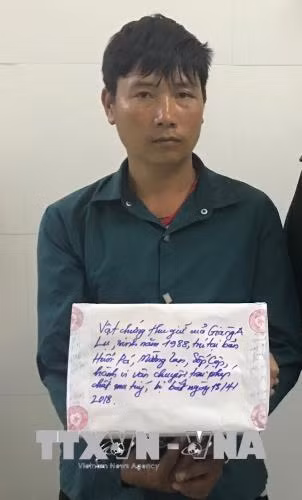 Vật chứng thu giữ mà Giàng A
Lụ, sinh năm 1988, trú tại bản
Huổi Pá, Mường Lạn, Sốp Cộp
hành vi vận chuyển trái phép
chất ma tuý, bị bắt ngày 13/4/
2018.
TTXVN - VNA
Vietnam News Agency